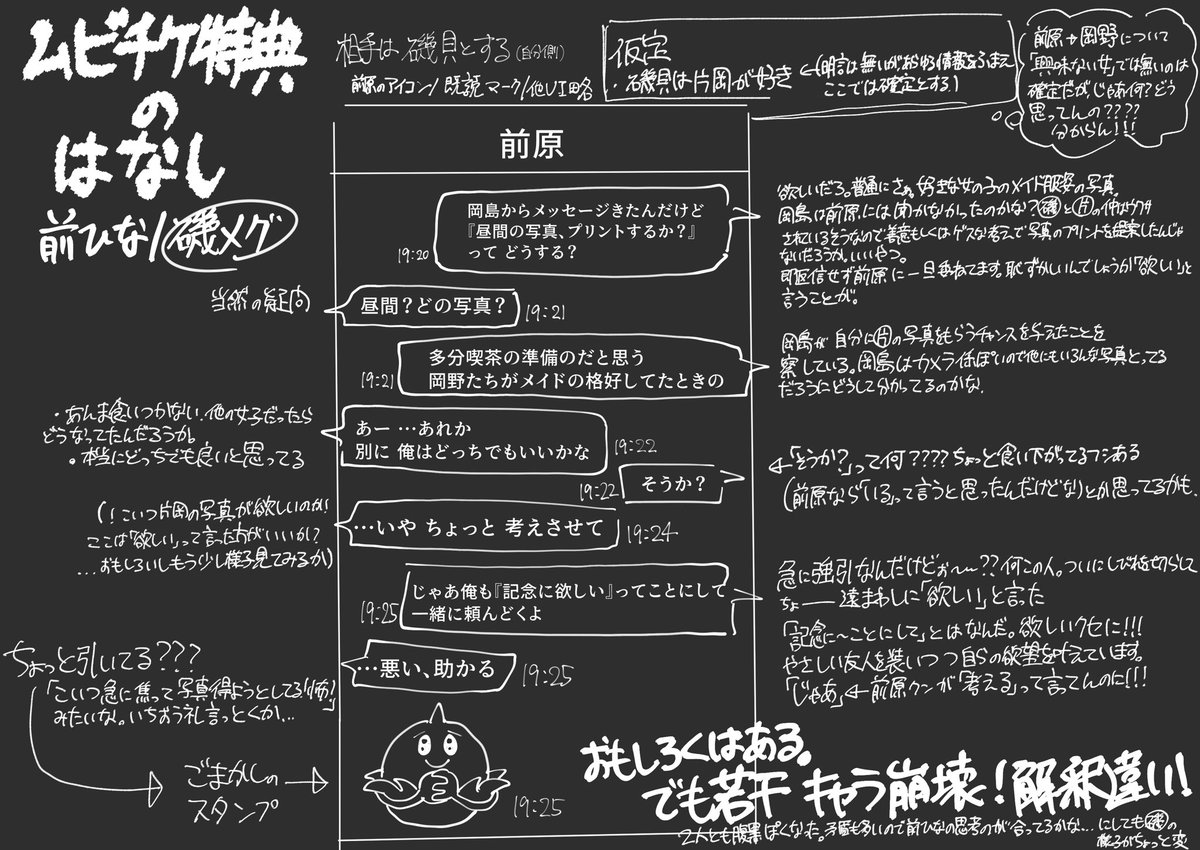 ムビチケ特典
の
はなし
前ひな/磯メグ
相手は磯貝とする(自分側)
前原のアイコン/既読マーク/他UI略
仮定
・磯貝は片岡が好き
←(明言は無いがお好み情報をふまえ
ここでは確定とする)
前原→岡野について
「興味ない女」では無いのは
確定だが、じゃあ何?どう
思ってんの????
分からん!!!
前原
岡島からメッセージきたんだけど
『昼間の写真、プリントするか?』
って どうする?
19:20
欲しいだろ。普通にさぁ、好きな女の子のメイド服姿の写真。
岡島は前原には聞かなかったのかな?磯と片の仲はウワサ
されているそうなので善意もしくはゲスな考えで写真のプリントを提案したんじゃ
ないだろうか。いいやつ。
即返信せず前原に一旦尋ねてます。恥ずかしいんでしょうか「欲しい」と
言うことが。
当然の疑問
昼間?どの写真?
19:21
多分喫茶の準備のだと思う
岡野たちがメイドの格好してたときの
19:21
岡島が自分に片の写真をもらうチャンスを与えたことを
察している。岡島はカメラ係ぽいので他にもいろんな写真とってる
だろうにどうして分かってるのかな。
・あんま食いつかない。他の女子だったら
どうなってたんだろうか。
・本当にどっちでも良いと思ってる
あー …あれか
別に 俺はどっちでもいいかな
19:22
そうか?
19:22
←「そうか?」って何????ちょっと食い下がってるフシある
(前原なら「いる」って言うと思ったんだけどな)とか思ってるかも。
(!こいつ片岡の写真が欲しいのか
ここは「欲しい」って言った方がいいか?
…おもしろいしもう少し様子見てみるか)
…いや ちょっと 考えさせて
19:24
じゃあ俺も『記念に欲しい』ってことにして
一緒に頼んどくよ
19:25
急に強引なんだけどぉ〜〜??何この人。ついにしびれを切らして
ちょ――遠まわしに「欲しい」と言った
「記念に〜ことにして」とはなんだ。欲しいクセに!!!
やさしい友人を装いつつ自らの欲望を叶えています。
「じゃあ」←前原クンが「考える」って言ってんのに!!!
…悪い、助かる
19:25
ちょっと引いてる???
「こいつ急に焦って写真得ようとしてる!怖!」
みたいな。いちおう礼言っとくか…
ごまかしの
スタンプ
19:25
おもしろくはある。
でも若干 キャラ崩壊!解釈違い!
2人とも腹黒ぽくなった。矛盾も多いので前ひなの思考のが合ってるかな…にしても磯の
様子がちょっと変